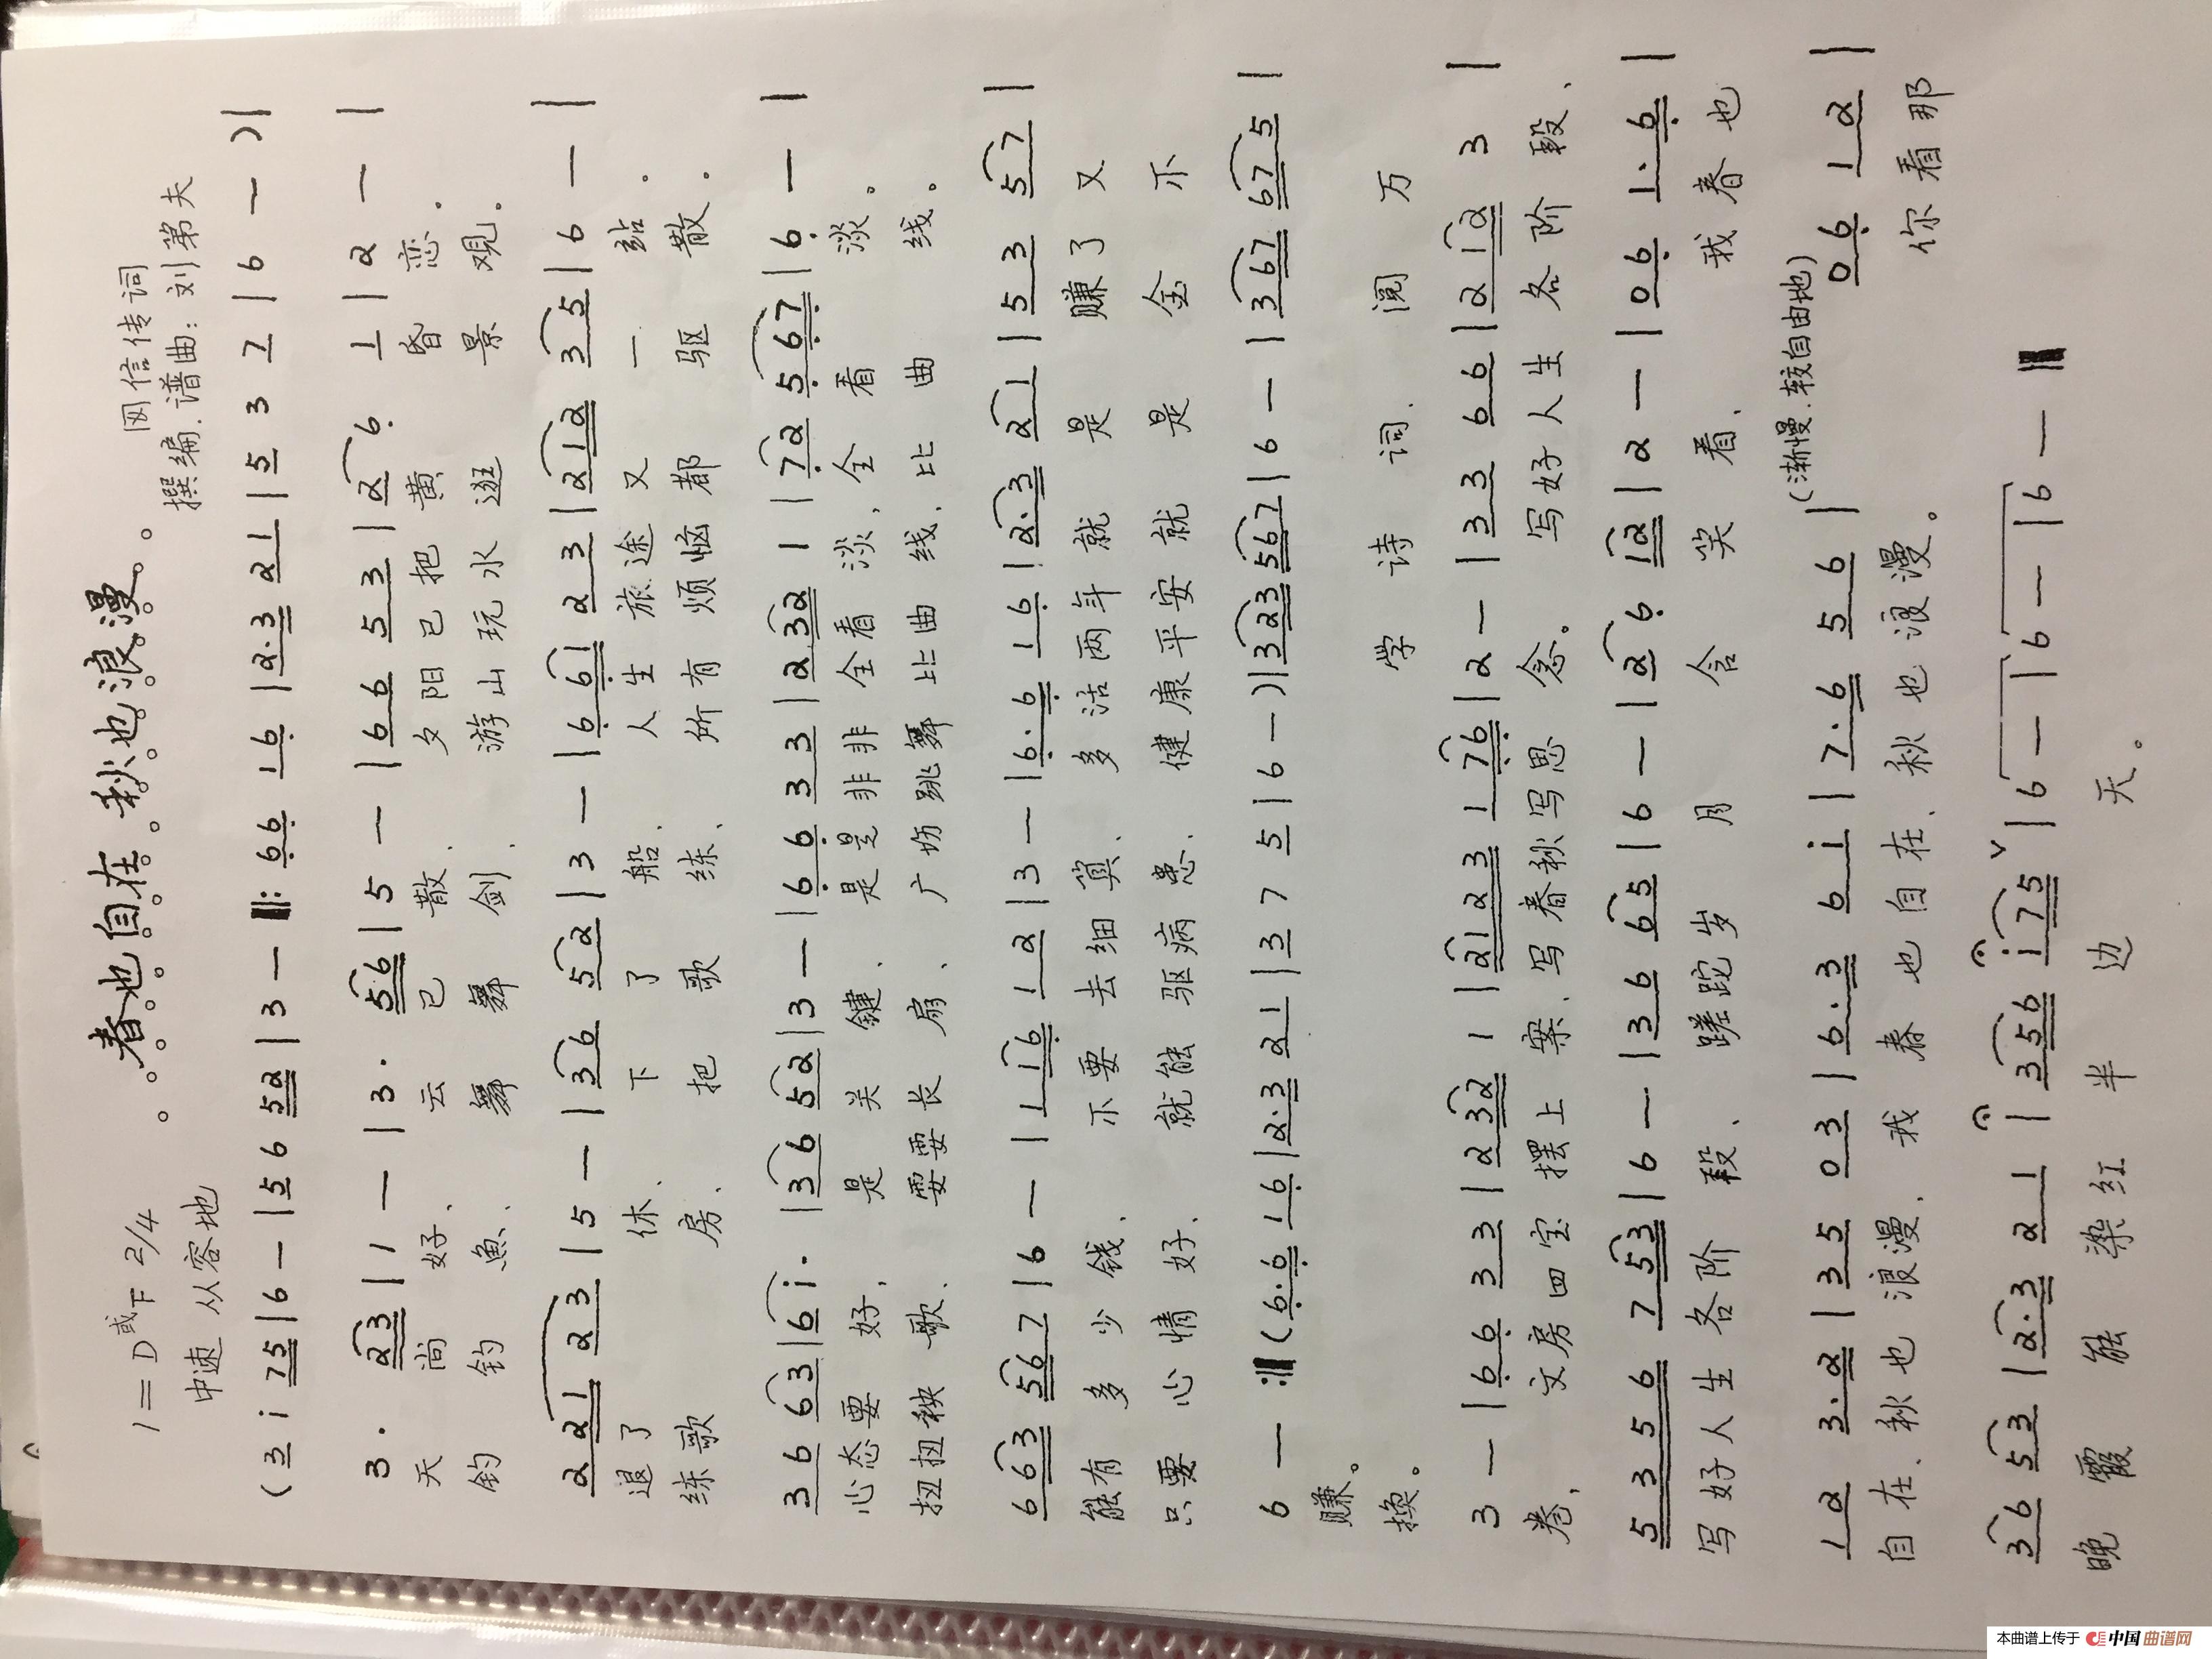 春也自在 秋也浪漫
1=D或F 2/4
网信传词
中速 从容地
撰编、谱曲：刘第夫
(3 i 75|6 —|56 52|3 —‖: 66 16|2·3 21|53 7|6 —)|
3· 23|1 —|3· 56|5 —|66 53|2 6 1|2 —|
天 尚 好、 云 已 散、 夕阳已把 黄 昏 恋。
钓 钓 魚、 舞 舞 剑、 游山玩水 逛 景 观。
2 21 23|5 —|36 52|3 —|6 61 23|2 12 35|6 —|
退 了 休、 下 了 船、 人生旅途 又 一 站。
练 歌 房、 把 歌 练、 所有烦恼 都 驱 散。
36 63|6 i·|36 52|3 —|66 33|2 32 1|72 567|6 —|
心态要好， 是关鍵、 是是非非全看淡，全看淡。
扭扭秧歌、 要要长扇、 广场跳舞比曲线，比曲线。
6 63 567|6 —|1 16 12|3 —|6·6 16|2·3 21|53 57|
能有多少钱、 不要去细算、 多活两年就是赚了又
只要心情好、 就能驱病患、 健康平安就是金不
6 — :‖(6·6 16|2·3 21|3 7 5|6 —)|323 567|6 —|3 67 675|
赚。 学诗词、 阅万
换。
3 —|66 33|2 32 1|2123 176|2 —|33 66|2 12 3|
卷， 文房四宝摆上案、写春秋写思念。 写好人生各阶段、
5356 7 53|6 —|36 65|6 —|2 6 12|2 —|06 1·6|
写好人生各阶段、 蹉跎岁月 含笑看、 我春也
12 3·2|35 03|6·3 6i|7·6 56|(渐慢、较自由地) 06 12|
自在、秋也浪漫、 我春也自在、秋也浪漫。 你看那
36 53|2·3 21|356 i75|6 —|6 —|6 —‖
晚霞能染红半边天。
本曲谱上传于 中国曲谱网